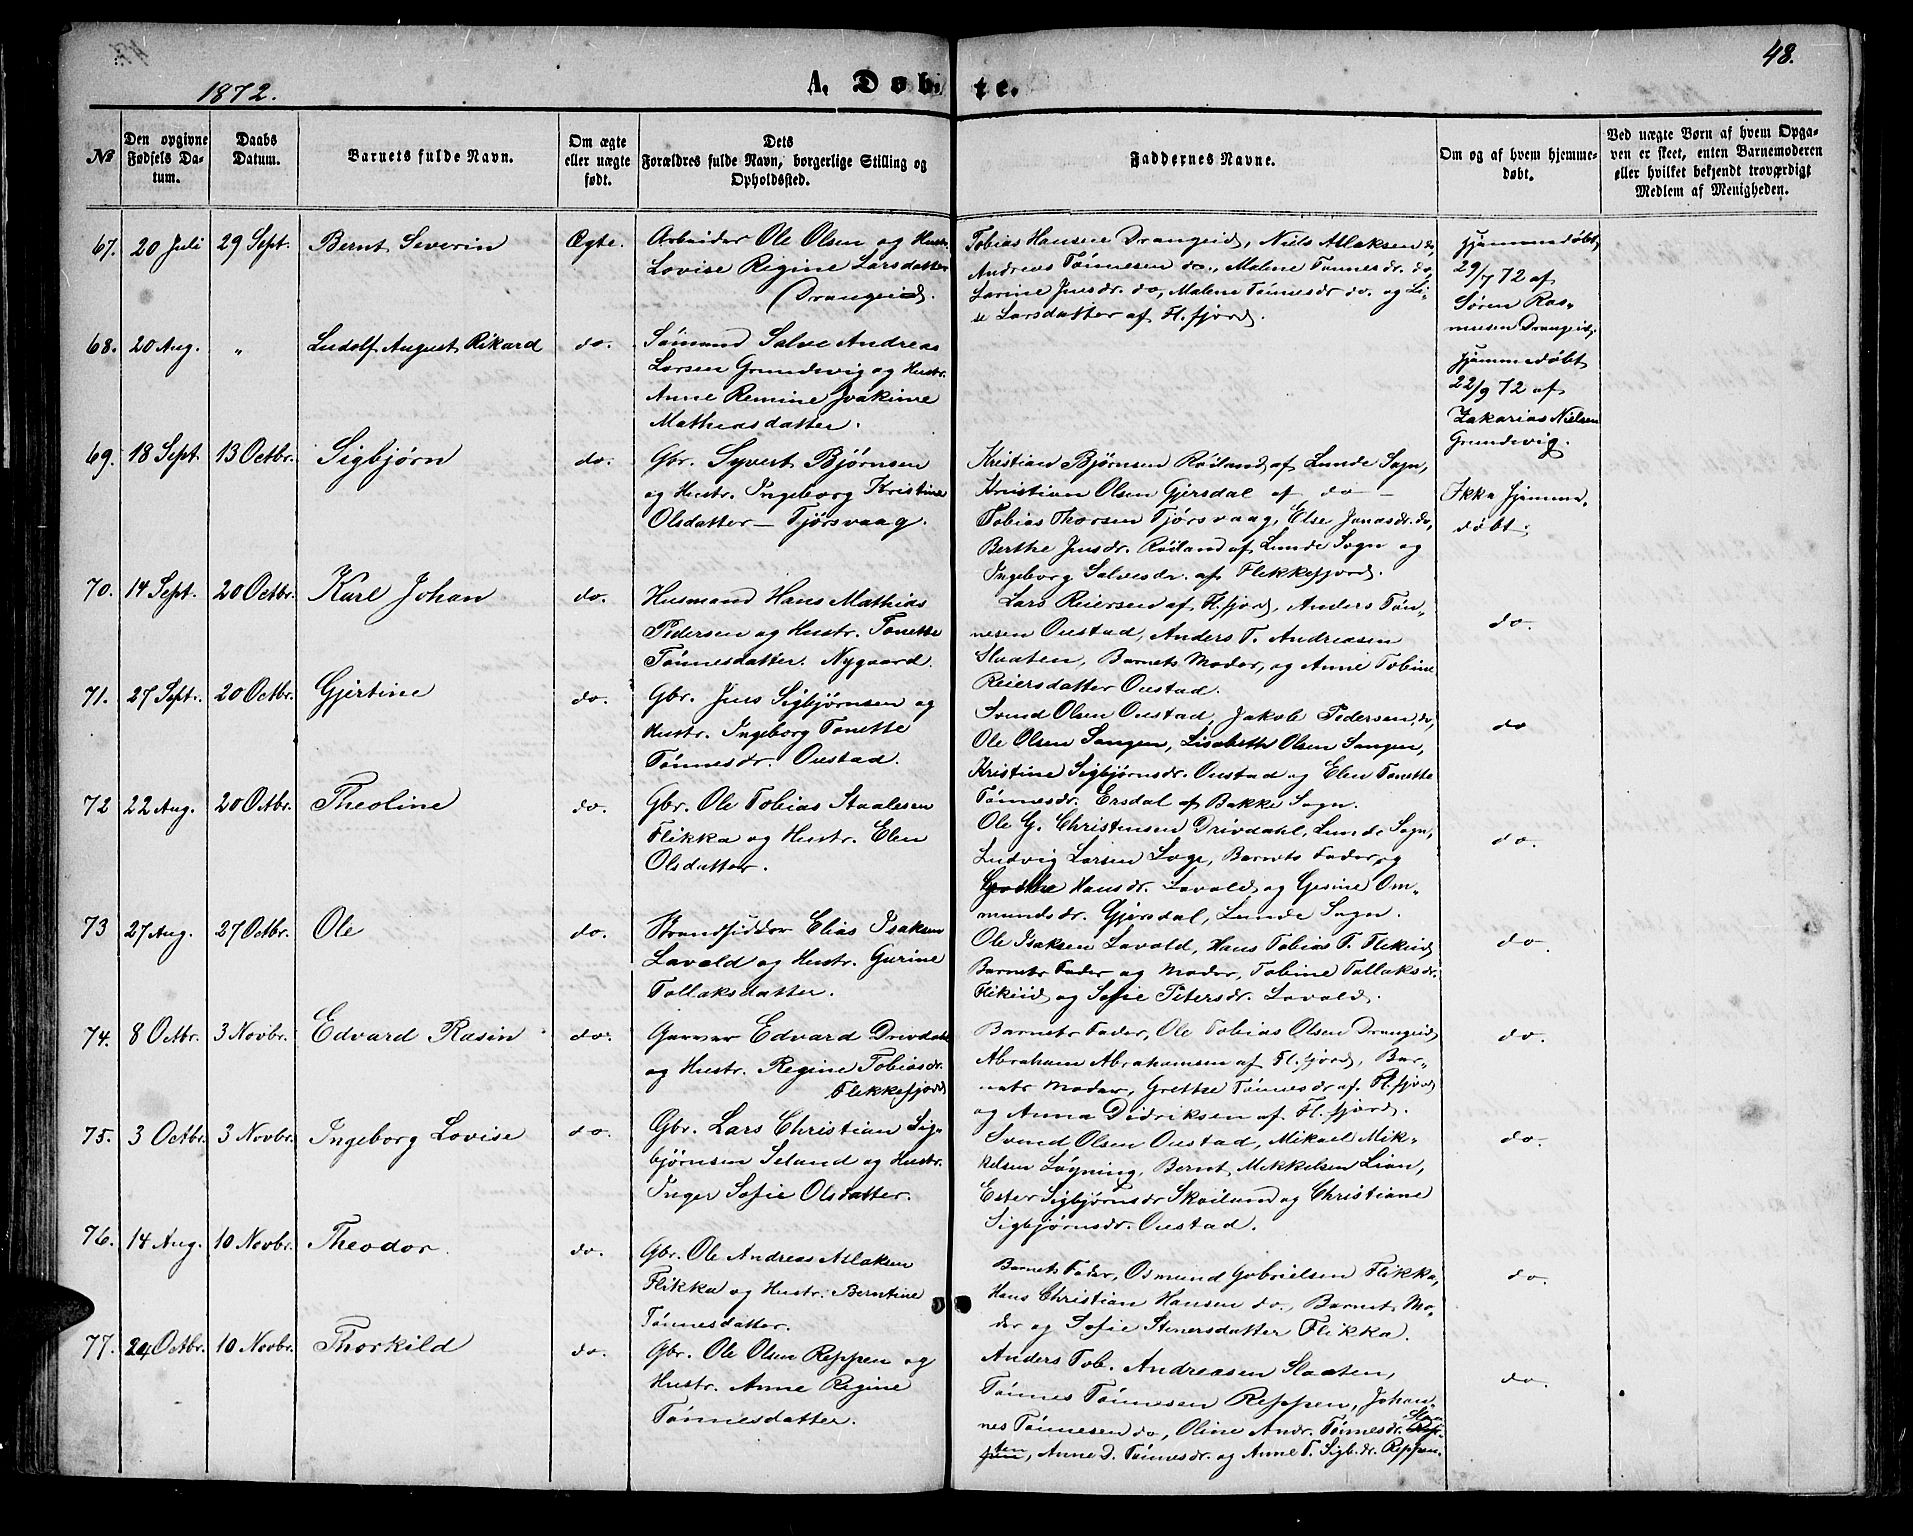 48.
1872.
A. Døbte.
№
Den opgivne Fødsels Datum.
Daabs Datum.
Barnets fulde Navn.
Om ægte eller uægte født.
Dets Forældres fulde Navn, borgerlige Stilling og Opholdssted.
Faddernes Navne.
Om og af hvem hjemmedøbt.
Ved uægte Børn af hvem Opgaven er skeet, enten Barnemoderen eller hvilket bekjendt troværdigt Medlem af Menigheden.
67. 20 Juli 29 Sept. Bernt Severin Ægte.
Arbeider Ole Olsen og Hustr.
Lovise Regine Larsdatter
Drangeid.
Tobias Hansen Drangeid, Niels Atlaksen do,
Andreas Tönnesen do., Malene Tönnesdr. do,
Larine Jensdr. do, Malene Tönnesdr do. og Li-
se Larsdatter af Fl.fjord.
Hjemmedøbt
29/7 72 af
Sören Ras-
musen Drangeid.
68. 20 Aug. " Ludolf August Rikard do.
Sömand Salve Andreas
Larsen Grundevig og Hustr.
Anne Remine Joakime
Mathiasdatter.
Hjemmedøbt
22/9 72 af
Zakarias Nielsen
Grundevig.
69. 18 Sept. 13 Octbr. Sigbjørn do.
Gbr. Syvert Bjørnsen
og Hustr. Ingeborg Kristine
Olsdatter - Tjörsvaag.
Kristian Bjørnsen Röiland af Lunde Sogn,
Kristian Olsen Gjersdal af do -
Tobias Thorsen Tjörsvaag, Else Jonasdr. do,
Berthe Jensdr. Röiland af Lunde Sogn og
Ingeborg Salvesdr. af Flekkefjord.
Ikke Hjemme-
døbt.
70. 14 Sept. 20 Octbr. Karl Johan do.
Husmand Hans Mathias
Pedersen og Hustr. Tonette
Tönnesdatter. Nygaard.
Lars Reiersen af Fl.fjord, Anders Tön-
nesen Oustad, Anders T. Andreasen
Slaaten, Barnets Moder, og Anne Tobine
Reiersdatter Oustad.
do.
71. 27 Sept. 20 Octbr. Gjertine do.
Gbr. Jens Sigbjørnsen og
Hustr. Ingeborg Tonette
Tönnesdr. Oustad.
Svend Olsen Oustad, Jakob Pedersen do,
Ole Olsen Sangen, Lisabeth Olsen Sangen,
Kristine Sigbjørnsdr. Oustad og Elen Tonette
Tönnesdr. Ersdal af Bakke Sogn.
do
72 22 Aug. 20 Octbr. Theoline do.
Gbr. Ole Tobias Staalesen
Flikka og Hustr. Elen
Olsdatter.
Ole G. Christensen Drivdahl, Lunde Sogn,
Ludvig Larsen Loge, Barnets Fader, og
Grethe Hansdr. Lavold og Gesine Om-
mundsdr. Gjersdal, Lunde Sogn.
do.
73 27 Aug. 27 Octbr. Ole do.
Strandsidder Elias Isaksen
Lavold og Hustr. Gurine
Tollaksdatter.
Ole Isaksen Lavold, Hans Tobias T. Flikeid
Barnets Fader og Moder, Tobine Tollaksdr.
Flikeid og Sofie Petersdr. Lavold.
do.
74. 8 Octbr. 3 Novbr. Edvard Rasin do.
Garver Edvard Drivdahl
og Hustr. Regine Tobiasdr.
Flekkefjord
Barnets Fader, Ole Tobias Olsen Drangeid,
Abraham Abrahamsen af Fl.fjord, Bar-
nets Moder, Grethe Tönnesdr af. Fl.fjord
og Anna Didriksen af. Fl.fjord.
do.
75. 3 Octbr. 3 Novbr. Ingeborg Lovise do.
Gbr. Lars Christian Sig-
bjørnsen Seland og Hustr.
Inger Sofie Olsdatter.
Svend Olsen Oustad, Mikael Mik-
kelsen Löyning, Bernt Mekkelsen Lian,
Ester Sigbjørnsdr Skoiland og Christiane
Sigbjørnsdr. Oustad.
do.
76. 14 Aug. 10 Novbr. Theodor. do.
Gbr. Ole Andreas Atlaksen
Flikka og Hustr. Berntine
Tönnesdatter.
Barnets Fader, Osmund Gabrielsen Flikka,
Hans Christian Hansen do., Barnets Mo-
der og Sofie Stenersdatter Flikka.
do.
77. 24 Octbr. 10 Novbr. Thorkild do.
Gbr. Ole Olsen Reppen og
Hustr. Anne Regine
Tönnesdatter.
Anders Tob. Andreasen Slaaten,
Tönnes Tönnesen Reppen, Johan-
nes Tönnesen do, Oline Andr. Tönnesdr. Slaa-
ten, Anne D. Tönnesdr. og Anne T. Sigb.dr. Reppen.
do.